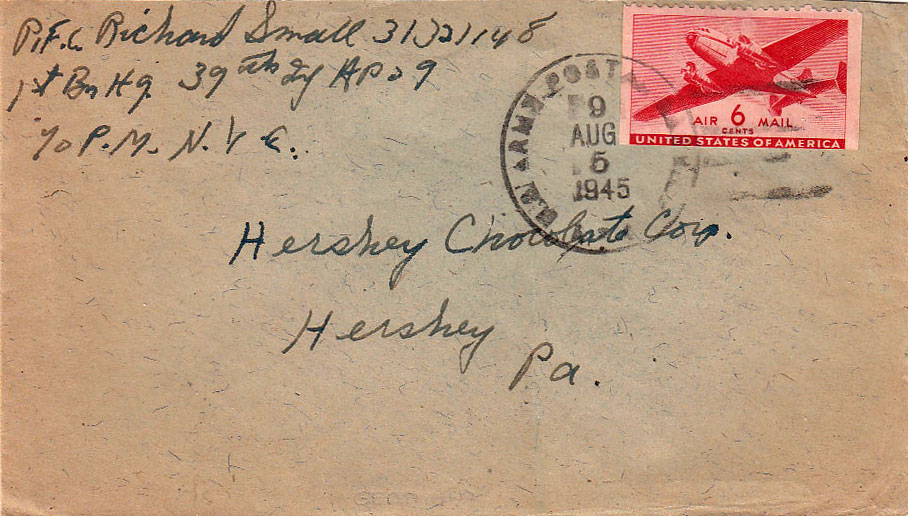 P.F.C. Richard Small 31321148
1st Bn Hq. 39th Inf APO 9
c/o P.M. N.Y.C.
U.S. ARMY POSTAL
9
AUG
5
1945
AIR 6 MAIL
CENTS
UNITED STATES OF AMERICA
Hershey Chocolate Corp.
Hershey
Pa.